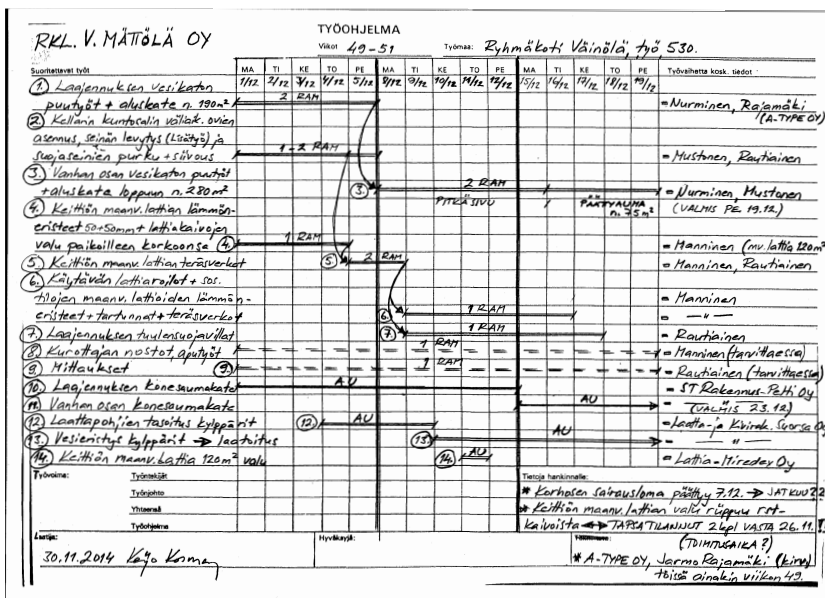 TYÖOHJELMA
RKL. V. MÄTTÖLÄ OY
Viikot 49-51
Työmaa: Ryhmäkoti Väinölä, työ 530.
Suoritettavat työt
MA TI KE TO PE MA TI KE TO PE MA TI KE TO PE
Työvaihetta kosk. tiedot
1/12 2/12 3/12 4/12 5/12 8/12 9/12 10/12 11/12 12/12 15/12 16/12 17/12 18/12 19/12
1. Laajennuksen vesikaton
puutyöt + aluskate n. 190m²
2 RAM
- Nurminen, Rajamäki
(A-TYPE OY)
2. Kellarin kuntosalin väliaik. ovien
asennus, seinän levytys (Lisätyö) ja
suojaseinien purku + siivous
1-2 RAM
- Mustonen, Rautiainen
3. Vanhan osan vesikaton puutyöt
+ aluskate loppuun n. 280m²
3. 2 RAM
PITKÄ SIVU
PÄÄTYAUMA
n. 75m²
- Nurminen, Mustonen
(VALMIS PE 19.12)
4. Keittiön maanv. lattian lämmön-
eristeet 50+50mm + lattiakaivojen
valu paikoilleen korkoonsa 4.
1 RAM
- Manninen (mv. lattia 120m²
5. Keittiön maanv. lattian teräsverkot
5. 2 RAM
- Manninen, Rautiainen
6. Käytävän lattiaroilot + sos.
tilojen maanv. lattioiden lämmön-
eristeet + tartunnat + teräsverkot
6. 1 RAM
- Manninen
- — " —
7. Laajennuksen tuulensuojavillat
7. 1 RAM
- Rautiainen
8. Kurottajan nostot, aputyöt
1 RAM
- Manninen (tarvittaessa)
9. Mittaukset 9.
1 RAM
- Rautiainen (tarvittaessa)
10. Laajennuksen konesaumakate
AU
- ST Rakennus-Petti Oy
11. Vanhan osan konesaumakate
AU
- — " —
(VALMIS 23.12)
12. Laattapohjien tasoitus kylppärit
12. AU
- Laatta- ja Kivirak. Suorsa Oy
13. Vesieristys kylppärit → laatoitus
13. AU
- — " —
14. Keittiön maanv. lattia 120m² valu
14. AU
- Lattia-Miredex Oy
Työvoima:
Työntekijät
Työnjohto
Yhteensä
Työohjelma
Tietoja hankinnalle:
* Korhosen sairausloma päättyy 7.12. → JATKUU??
* Keittiön maanv. lattian valu riippuu rst-
kaivoista ↔ TAPSA TILANNUT 2 kpl VASTA 26.11. !!
(TOIMITUSAIKA?)
* A-TYPE OY, Jarmo Rajamäki (kirv)
töissä ainakin viikon 49.
Laatija:
30.11.2014
Hyväksyjä: